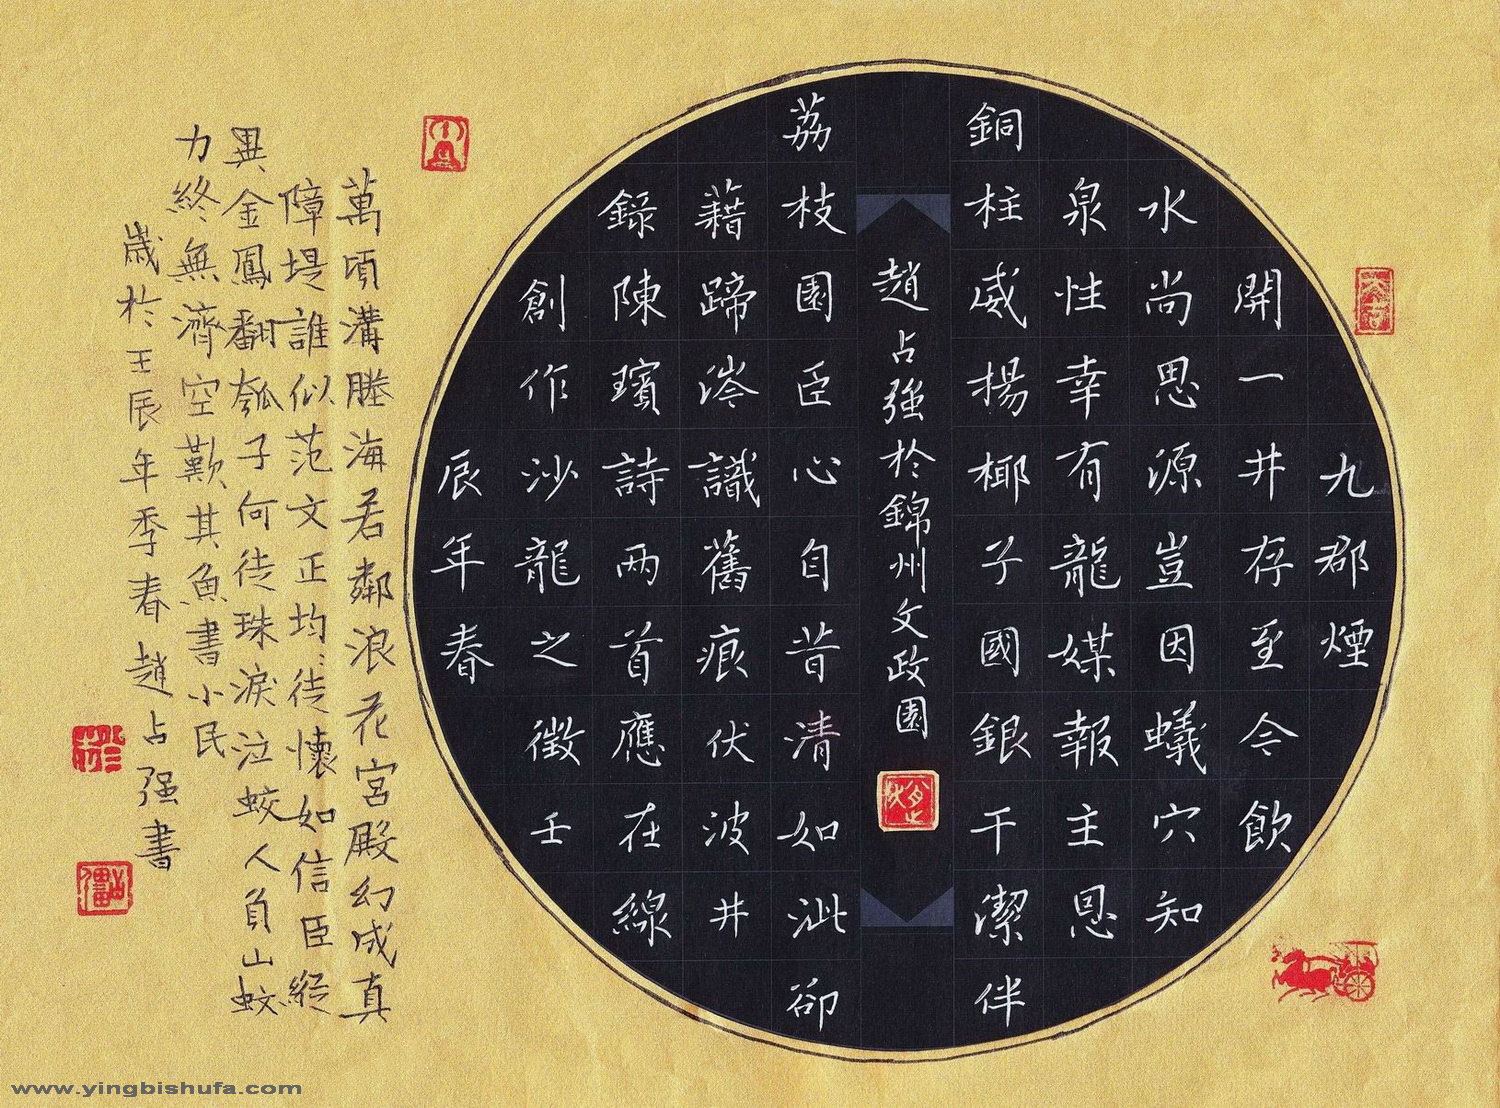 九郡煙
開一井存至今飲
水尚思源豈因蟻穴知
泉性幸有龍媒報主恩
銅柱威揚椰子國銀干潔伴
趙占強於錦州文政園
荔枝園臣心自昔清如泚卻
藉蹄涔識舊痕伏波井
錄陳璸詩兩首應在線
創作沙龍之徵壬
辰年春
萬頃溝塍海若鄰浪花宮殿幻成真
障堤誰似范文正均徭懷如信臣縱
異金鳳翻瓠子何徒珠淚泣蛟人負山蚊
力終無濟空歎其魚書小民
歲於壬辰年季春趙占强書
www.yingbishufa.com